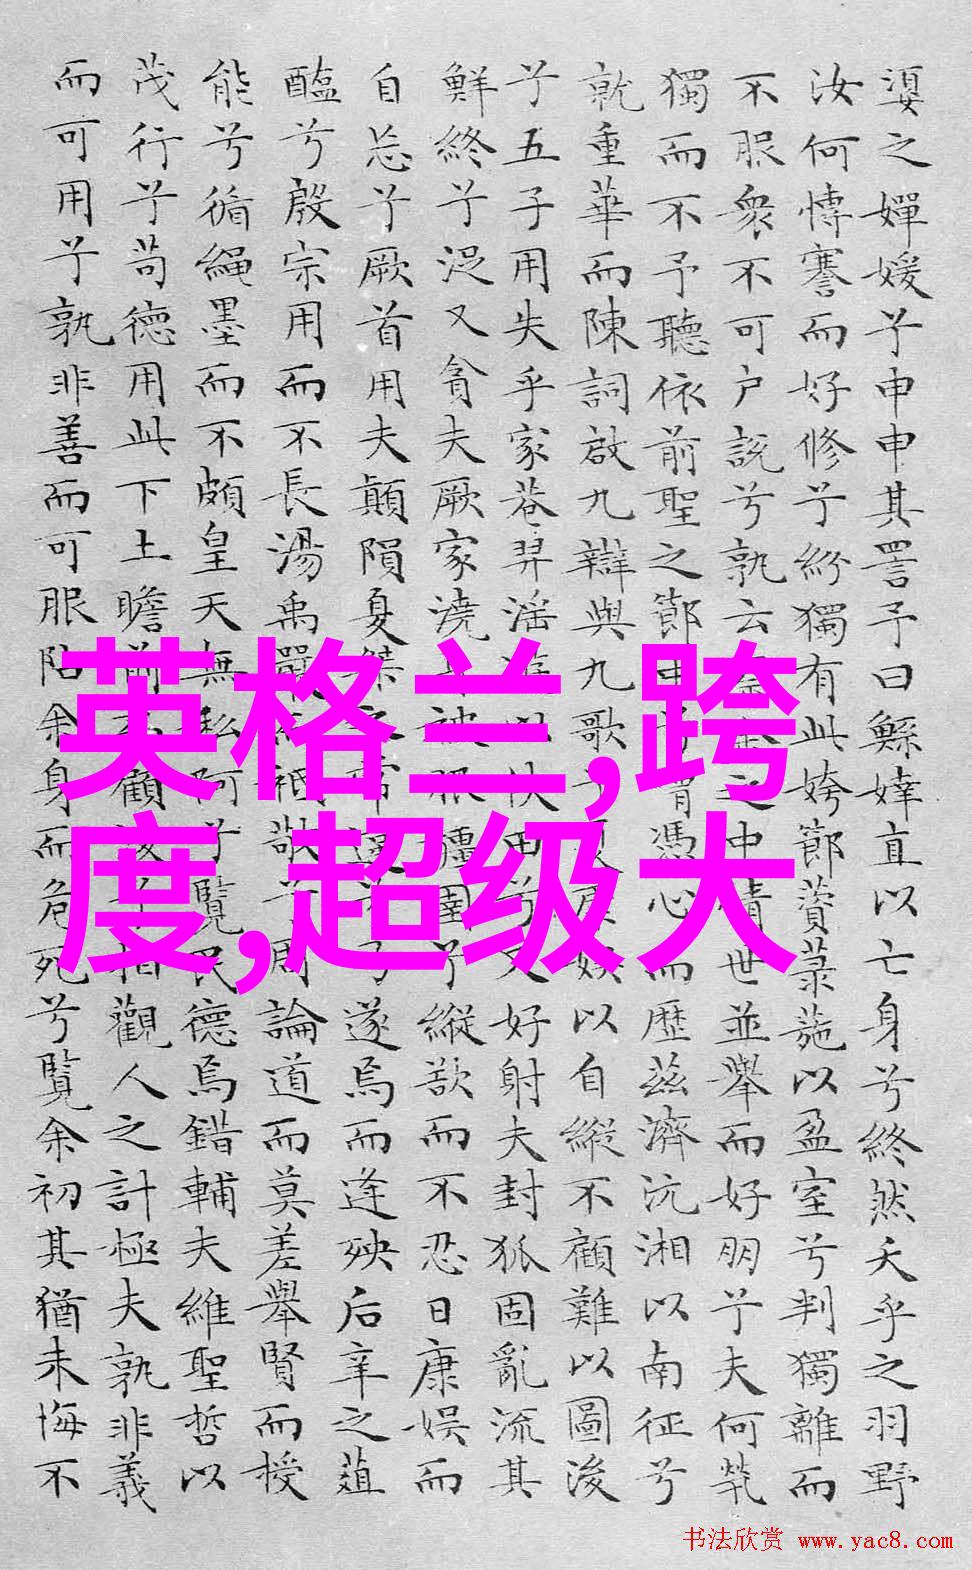 嬃之嬋媛兮申申其詈予曰鯀婞直以亡身兮終然夭乎之羽野
汝何博謇而好修兮紛獨有此姱節薋菉葹以盈室兮判獨離而
不服衆不可户説兮孰云之中情世並舉而好朋兮夫何煢
獨而不予聽依前聖之節憑心而歷茲濟沅湘以南征兮
就重華而陳詞啟九辯與九歌夏康娛以自縱不顧難以圖後
兮五子用失乎家巷羿淫遊以佚田兮又好射夫封狐固亂流其
鮮終兮浞又貪夫厥家澆被服彊圉兮縱欲而不忍日康娛而
自忘兮厥首用夫顛隕夏桀之常違遂焉而逢殃后辛之菹
醢兮殷宗用而不長湯禹嚴祗敬兮周論道而莫差舉賢而授
能兮循繩墨而不頗皇天無私阿兮覽民德焉錯輔夫維聖哲以
茂行兮苟德用此下土瞻前顧相觀人之計極夫孰非義
而可用兮孰非善而可服阽余身而危死兮覽余初其猶未悔不
英格兰,跨
度,超级大
书法欣赏 www.yac8.com